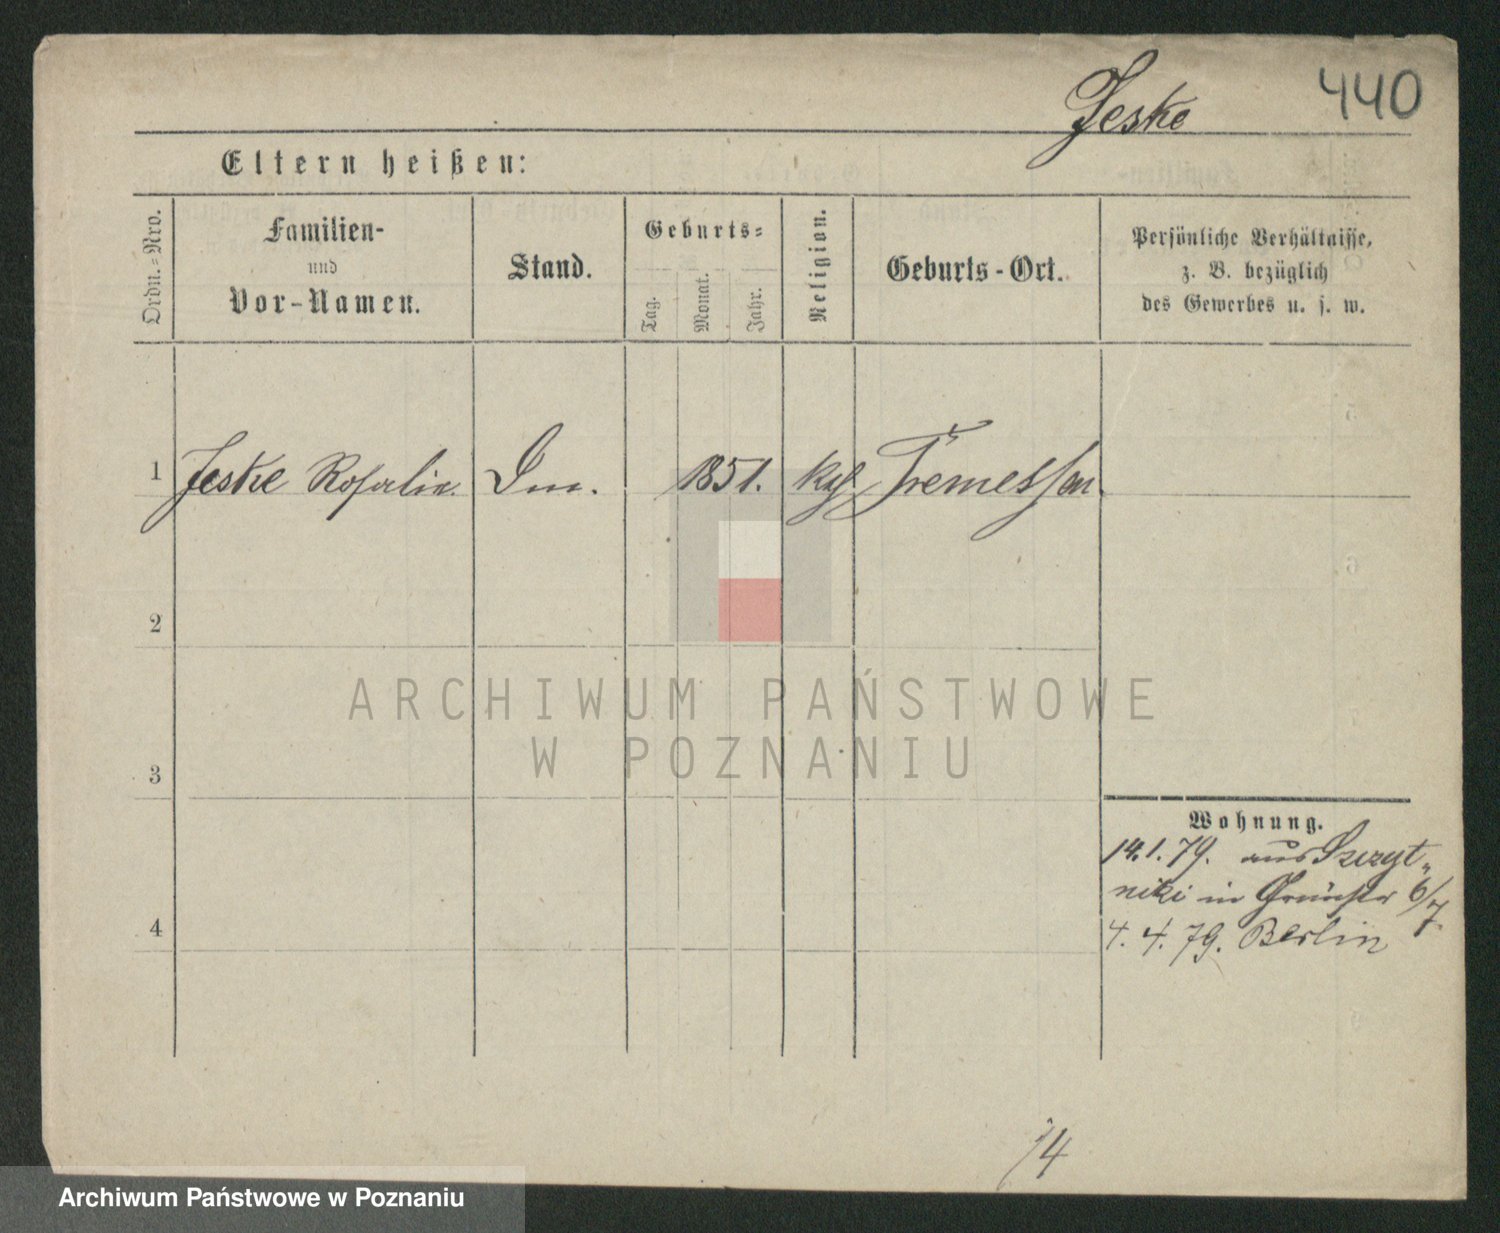 Jeske 440
Eltern heißen:
Ordn.-Nro.
Familien-
und
Vor-Namen.
Stand.
Geburts-
Tag.
Monat.
Jahr.
Religion.
Geburts-Ort.
Persönliche Verhältnisse,
z. B. bezüglich
des Gewerbes u. s. w.
1 Jeske Rosalie. 1851. kath Tremessen.
2
ARCHIWUM PAŃSTWOWE
W POZNANIU
3
Wohnung.
14.1.79. aus Szczyt-
niki in 6/7
4
4. 4. 79. Berlin
14
Archiwum Państwowe w Poznaniu